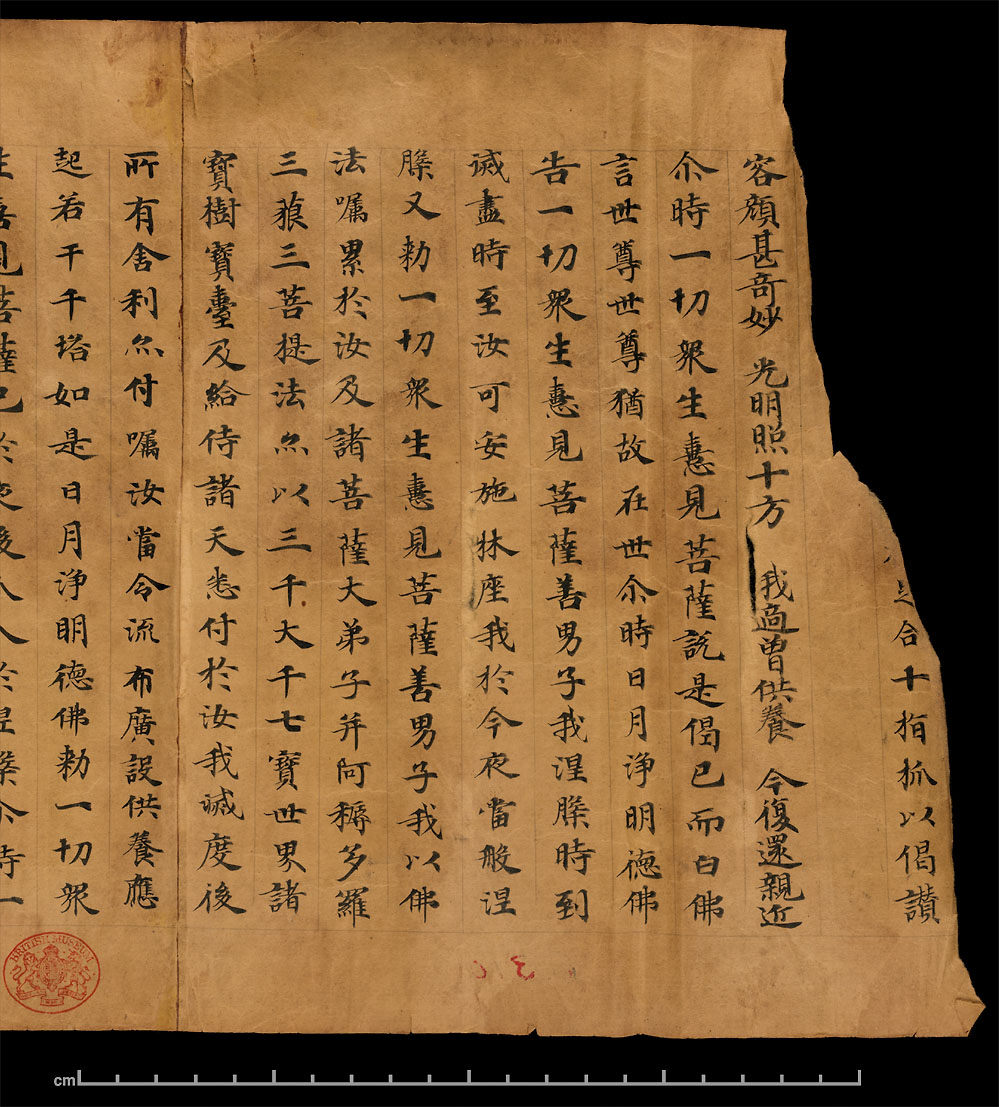 足合十指抓以偈讚
容顏甚奇妙 光明照十方 我適曾供養 今復還親近
尒時一切眾生憙見菩薩說是偈已而白佛
言世尊世尊猶故在世尒時日月淨明德佛
告一切眾生憙見菩薩善男子我涅槃時到
滅盡時至汝可安施牀座我於今夜當般涅
槃又勑一切眾生憙見菩薩善男子我以佛
法囑累於汝及諸菩薩大弟子并阿耨多羅
三藐三菩提法亦以三千大千七寶世界諸
寶樹寶臺及給侍諸天悉付於汝我滅度後
所有舍利亦付囑汝當令流布廣設供養應
起若干千塔如是日月淨明德佛勑一切眾
生憙見菩薩已於夜後分入於涅槃尒時一
BRITISH MUSEUM
cm